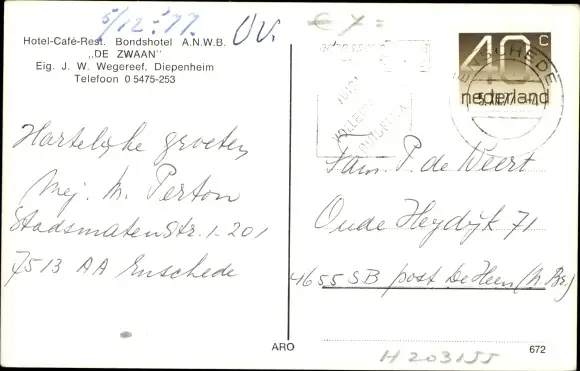 5/12-'77.
UV.
€ 7 =
Hotel-Café-Rest. Bondshotel A.N.W.B.
„DE ZWAAN"
Eig. J. W. Wegereef, Diepenheim
Telefoon 0 5475-253
Hartelijke groeten
Mej. M. Perton
Stadsmatenstr. 1-201
7513 AA Enschede
40 c
nederland
ENSCHEDE
5.XII.77
Fam. P. de Weert
Oude Heydijk 71
4655 SB post De Heen (N. Br.)
ARO
672
H 203155